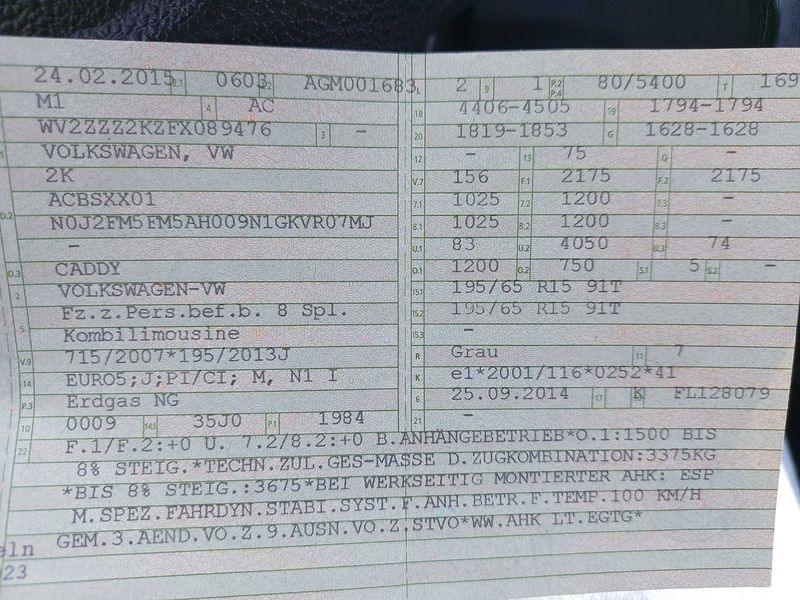 24.02.2015 2.1 0603 2.2 AGM001683
M1 4 AC
WV2ZZZ2KZFX089476 3 -
VOLKSWAGEN, VW
2K
ACBSXX01
D.2 N0J2FM5FM5AH009N1GKVR07MJ
-
D.3 CADDY
2 VOLKSWAGEN-VW
Fz.z.Pers.bef.b. 8 Spl.
5 Kombilimousine
V.9 715/2007*195/2013J
14 EURO5;J;PI/CI; M, N1 I
P.3 Erdgas NG
10 0009 14.1 35J0 P.1 1984
L 2 9 1 P.2 P.4 80/5400 T 169
18 4406-4505 19 1794-1794
20 1819-1853 G 1628-1628
12 - 13 75 Q -
V.7 156 F.1 2175 F.2 2175
7.1 1025 7.2 1200 7.3 -
8.1 1025 8.2 1200 8.3 -
U.1 83 U.2 4050 U.3 74
O.1 1200 O.2 750 S.1 5 S.2 -
15.1 195/65 R15 91T
15.2 195/65 R15 91T
15.3 -
R Grau 11 7
K e1*2001/116*0252*41
6 25.09.2014 17 K 16 FL128079
21 -
22 F.1/F.2:+0 U. 7.2/8.2:+0 B.ANHÄNGEBETRIEB*O.1:1500 BIS
8% STEIG.*TECHN.ZUL.GES-MASSE D.ZUGKOMBINATION:3375KG
*BIS 8% STEIG.:3675*BEI WERKSEITIG MONTIERTER AHK: ESP
M.SPEZ.FAHRDYN.STABI.SYST.F.ANH.BETR.F.TEMP.100 KM/H
GEM.3.AEND.VO.Z.9.AUSN.VO.Z.STVO*WW.AHK LT.EGTG*
eln
23